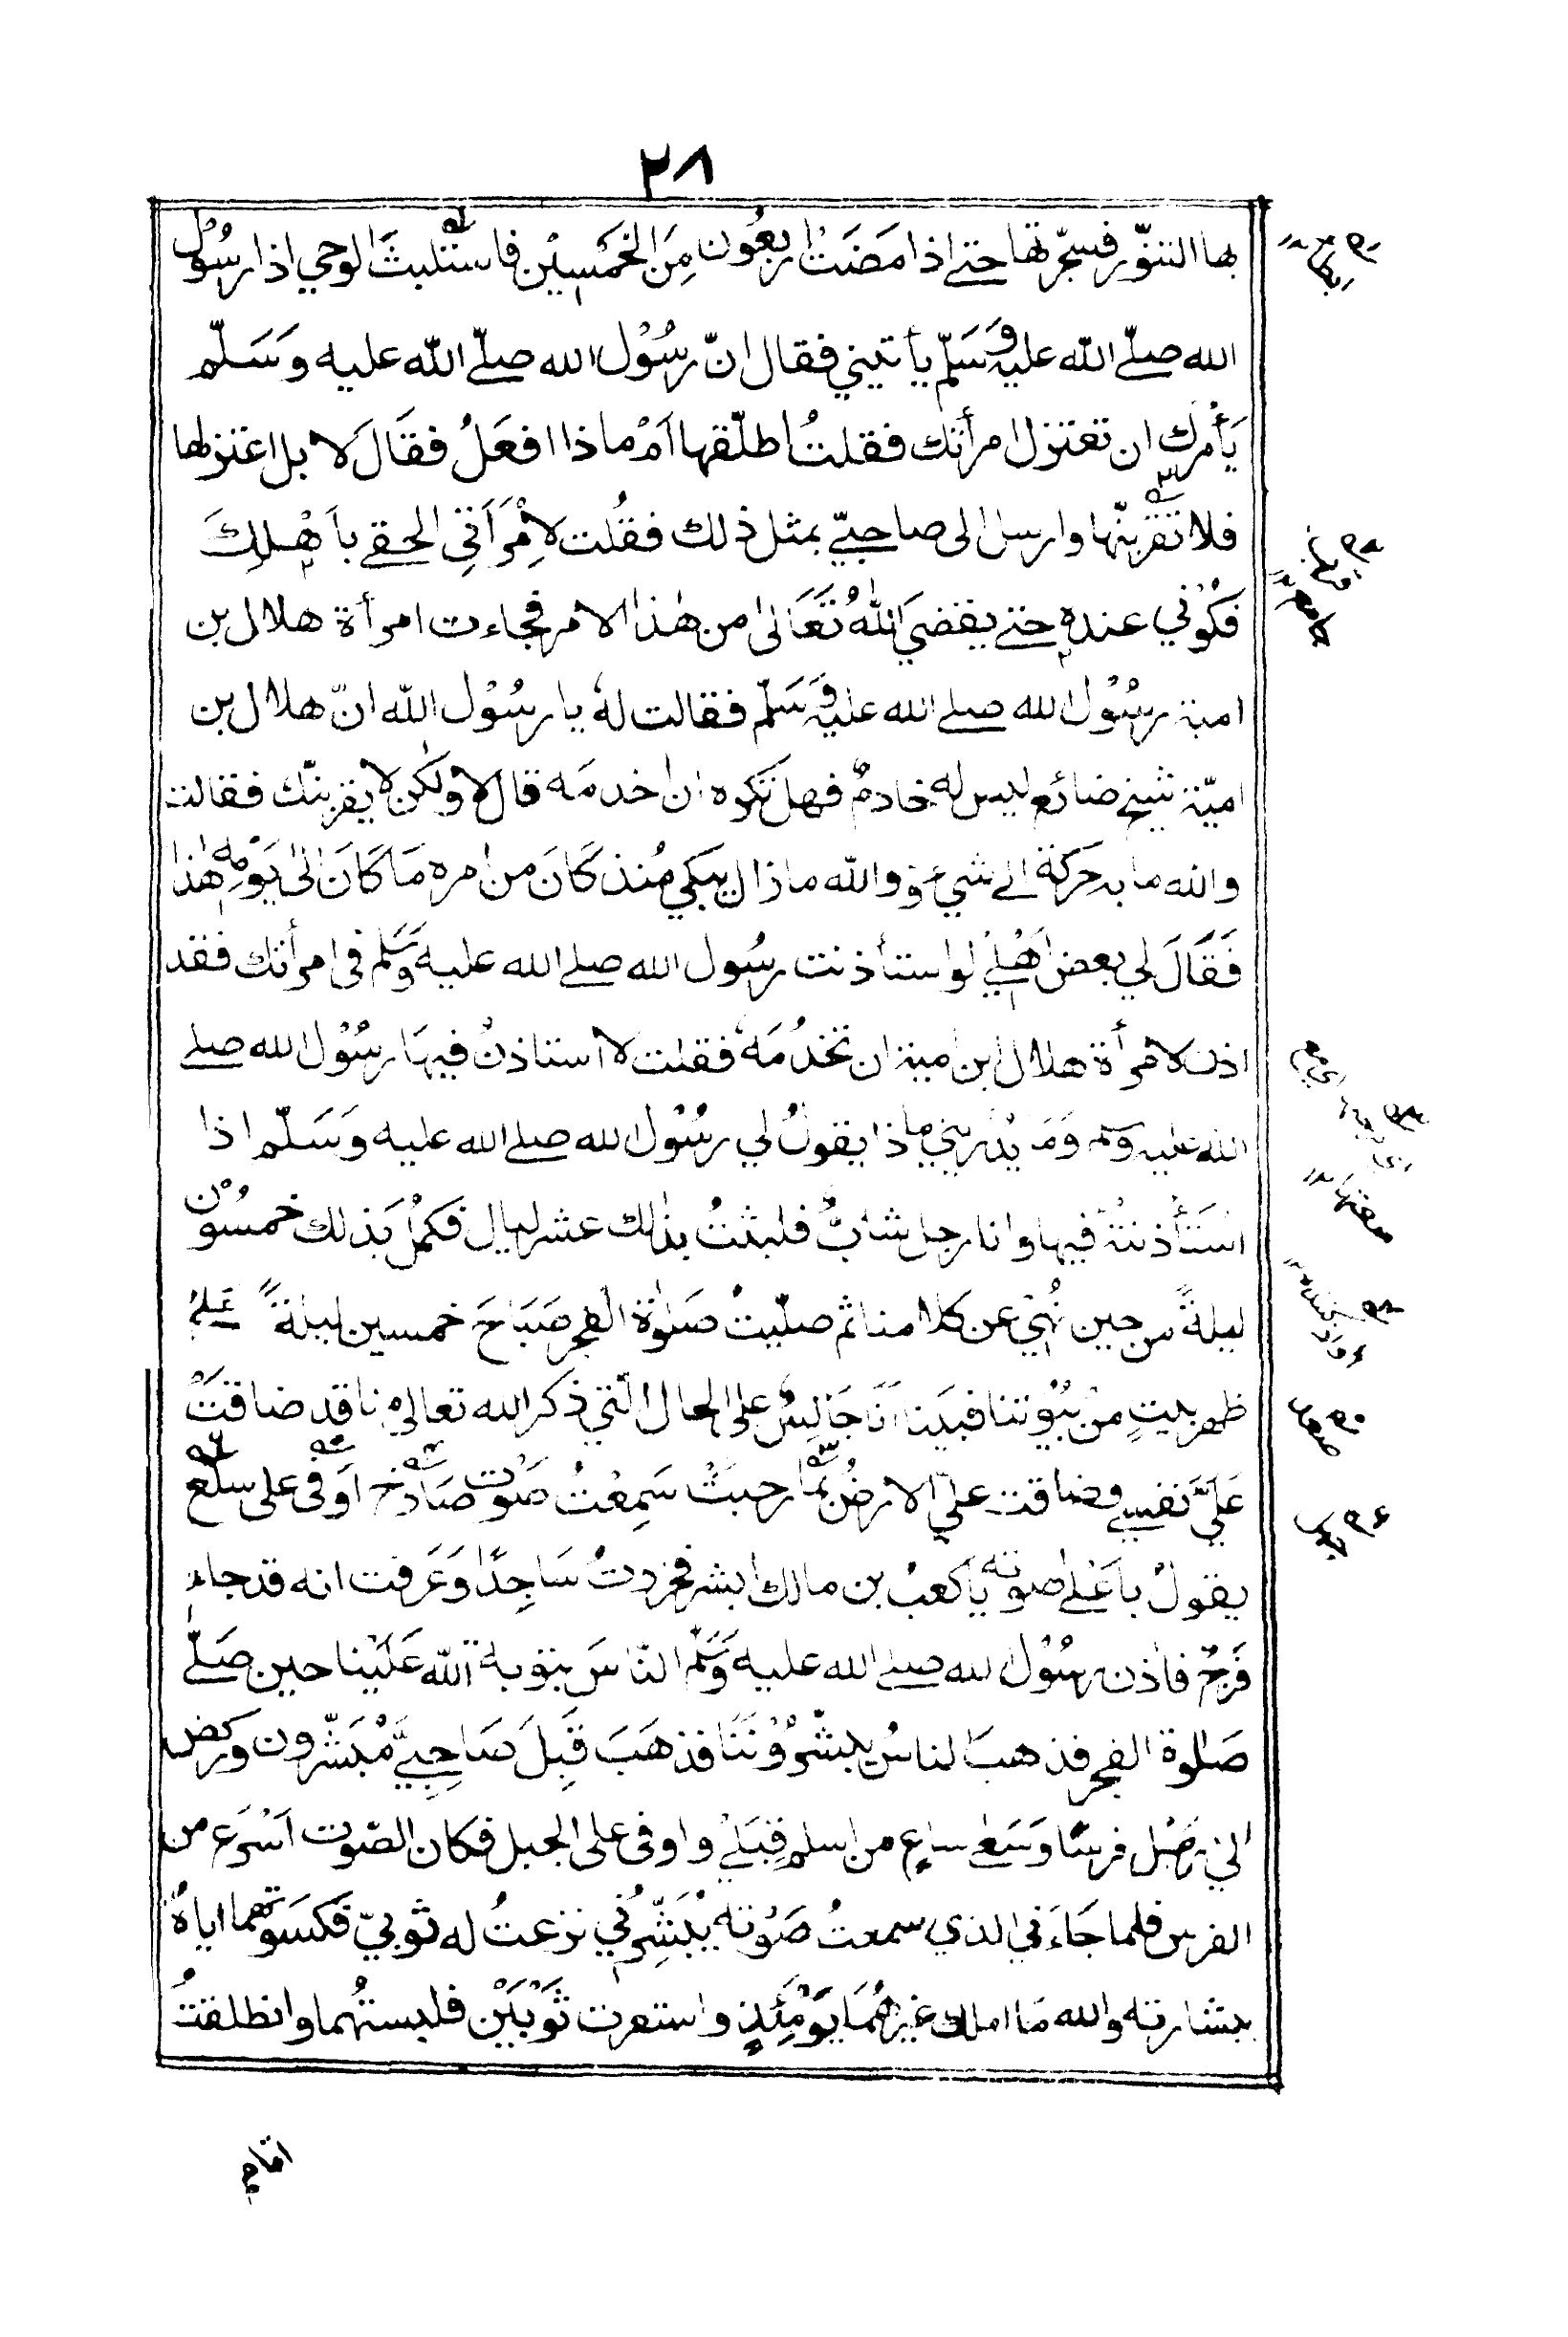 ٢٨
بها التنّور فسجّرتها حتے اذا مَضَتْ اربعُون مِنَ الخَمْسِيْن فاستلبثَ الوحي اذا رسُوْل
الله صلّے الله عليه وَسَلّم يأتيني فقال انّ رسُوْل الله صلّے الله عليه وَسَلّم
يَأمُرك ان تعتزل امرأتك فقلتُ اطلّقها اَمْ ماذا افعَلُ فقَالَ لا بل اعتزلها
فلا تَقْربنّها وارسل الى صاحبيّ بمثل ذلك فقُلت لاِمْرَأَتِي الحقے باَهْلِكَ
فَكُوْني عندهم حتے يقضيَ اللّٰهُ تَعَالىٰ من هٰذا الامر فجاءت امرأة هلال بن
امية رسُوْل الله صلے الله عليه وَسَلّم فقالت لهٗ يا رسُوْل الله انّ هلال بن
اميّة شيخ ضائع ليس له خادمٌ فهل تكره ان اخدمَه قال لا ولٰكن لا يقربنّك فقالت
والله ما به حَرَكة الے شيءٍ ووالله ما زال يبكي مُنذ كَانَ من امره مَا كَانَ الىٰ يَوْمِه هٰذا
فَقَالَ لي بعض اَهْلِيْ لو استأذنت رسُول الله صلے الله عليه وَسَلم في امرأتك فقد
اذن لامرأة هلال ابن امية ان تخدُمَهٗ فقلت لا استاذنُ فيهَا رسُوْل الله صلے
الله عليه وسلم وَمَا يُدْريني ما ذا يقولُ لي رسُوْل الله صلے الله عليه وَسَلّم اذا
اسْتَأذنتهٗ فيها وانا رجل شابٌّ فلبثتُ بذلك عشر ليال فكمُل بَذلك خمسُوْن
ليلةً من حين نُهِيَ عن كلامنا ثم صلّيتُ صَلٰوة الفجر صَبَاحَ خمسين ليلةً عَلے
ظهر بيتٍ مِنْ بُيُوتنا فبَينا اَنَا جَالِسٌ على الحال الّتي ذكر الله تعالى منا قد ضاقتْ
عَلَيَّ نفسے وضاقت علَيّ الارضُ بما رحبتْ سَمِعْتُ صَوْت صَارخ اَوْفى على سلع
يقولُ باَعْلےٰ صوته يَا كعبُ بن مالك ابشر فخررتُ سَاجِدًا وَعَرفت انه قد جاء
فَرجٌ فاذن رسُوْل الله صلے الله عليه وَسَلّم النّاسَ بتوبة الله عَلَيْنا حين صَلّٰے
صَلٰوة الفجر فذهبَ الناسُ يبشّرُوْنَنَا فذهَبَ قِبَلَ صَاحِبيَّ مُبَشّرون وركض
الىّ رَجُل فرسًا وَسَعٰى ساعٍ من اسلم قِبَلِيْ واوفى على الجبل فكان الصّوت اَسْرَع من
الفرس فلما جَاءَني الذي سمعتُ صَوْته يُبَشِّرُني نزعتُ له ثوبيّ فكسَوتهما اياهُ
ببشارته والله مَا املك غيرهُمَا يَوْمَئِذٍ واستعرت ثَوْبَيْن فلبستُهما وانطلقتُ